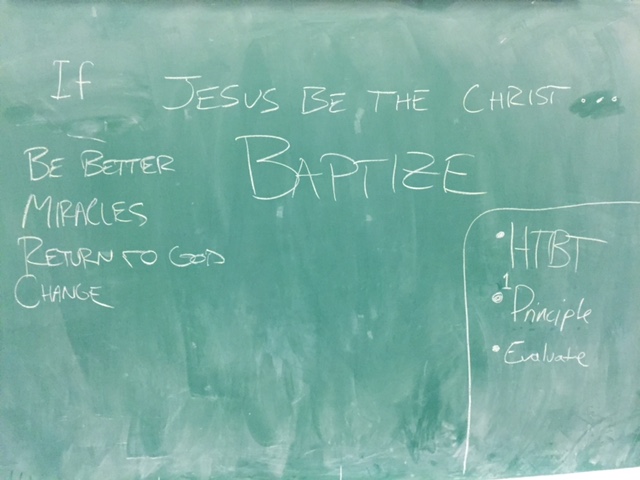 If JESUS BE THE CHRIST...
BAPTIZE
BE BETTER
MIRACLES
RETURN TO GOD
CHANGE
• HTBT
• 1 Principle
• Evaluate